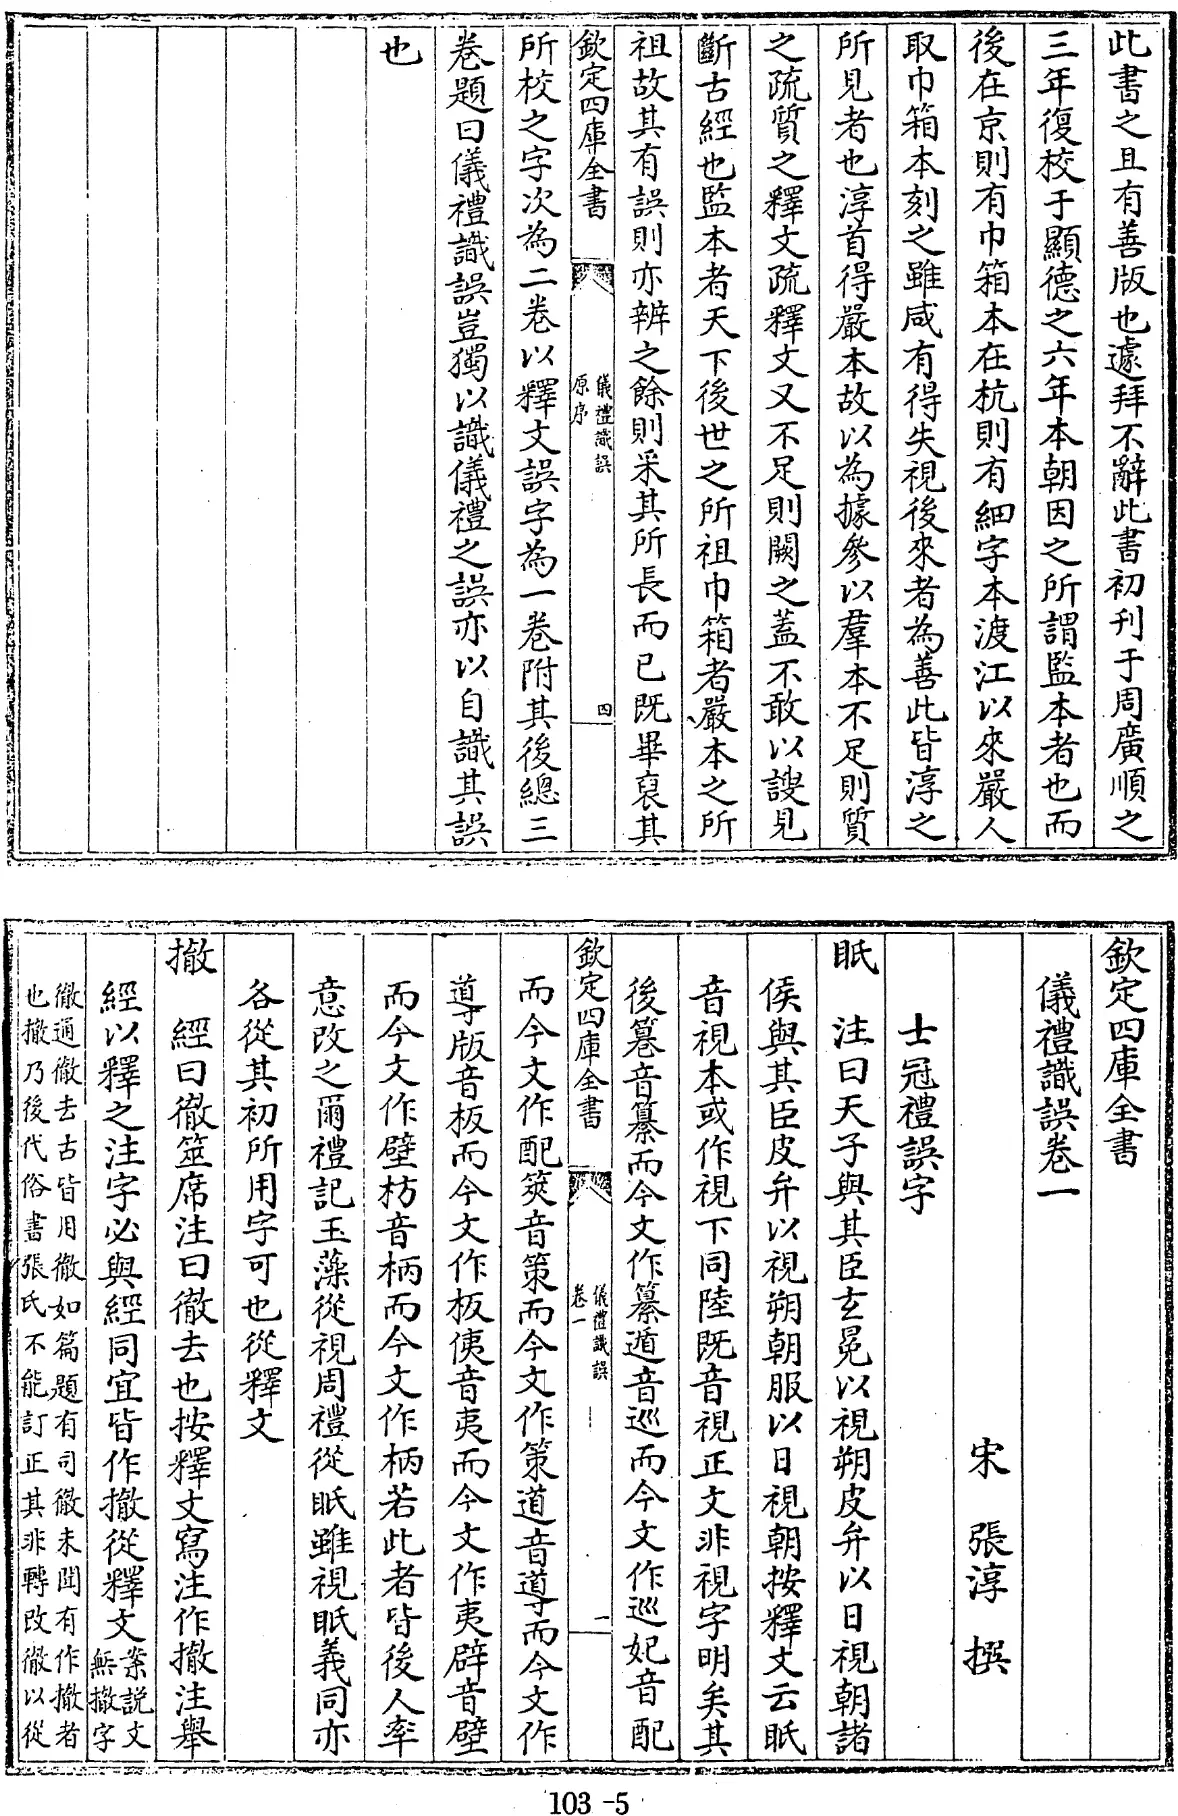 此書之且有善版也遽拜不辭此書初刊于周廣順之
三年復校于顯德之六年本朝因之所謂監本者也而
後在京則有巾箱本在杭則有細字本渡江以來嚴人
取巾箱本刻之雖咸有得失視後來者為善此皆淳之
所見者也淳首得嚴本故以為據參以羣本不足則質
之疏質之釋文疏釋文又不足則闕之蓋不敢以謏見
斷古經也監本者天下後世之所祖巾箱者嚴本之所
祖故其有誤則亦辨之餘則采其所長而已既畢裒其
欽定四庫全書
儀禮識誤
原序
四
所校之字次為二卷以釋文誤字為一卷附其後總三
卷題曰儀禮識誤豈獨以識儀禮之誤亦以自識其誤
也
欽定四庫全書
儀禮識誤卷一
宋 張淳 撰
士冠禮誤字
眂 注曰天子與其臣玄冕以視朔皮弁以日視朝諸
侯與其臣皮弁以視朔朝服以日視朝按釋文云眂
音視本或作視下同陸既音視正文非視字明矣其
後篹音纂而今文作纂遁音巡而今文作巡妃音配
欽定四庫全書
儀禮識誤
卷一
一
而今文作配筴音策而今文作策道音導而今文作
導版音板而今文作板侇音夷而今文作夷辟音壁
而今文作壁枋音柄而今文作柄若此者皆後人率
意改之爾禮記玉藻從視周禮從眂雖視眂義同亦
各從其初所用字可也從釋文
撤 經曰徹筮席注曰徹去也按釋文寫注作撤注舉
經以釋之注字必與經同宜皆作撤從釋文案說文無撤字
徹通徹去古皆用徹如篇題有司徹未聞有作撤者
也撤乃後代俗書張氏不能訂正其非轉改徹以從
103-5